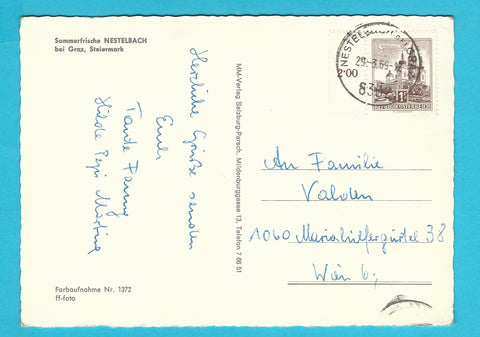 Sommerfrische NESTELBACH
bei Graz, Steiermark
Herzliche Grüße senden
Euch
Tante Fanny
Hilde Pepi Martina
Farbaufnahme Nr. 1372
ff-foto
MM-Verlag Salzburg-Parsch, Mildenburggasse 13, Telefon 7 65 51
NESTELBACH bei GRAZ
2·00
REPUBLIK ÖSTERREICH
An Familie
Valden
1060 Mariahilfergürtel 38
Wien 6,